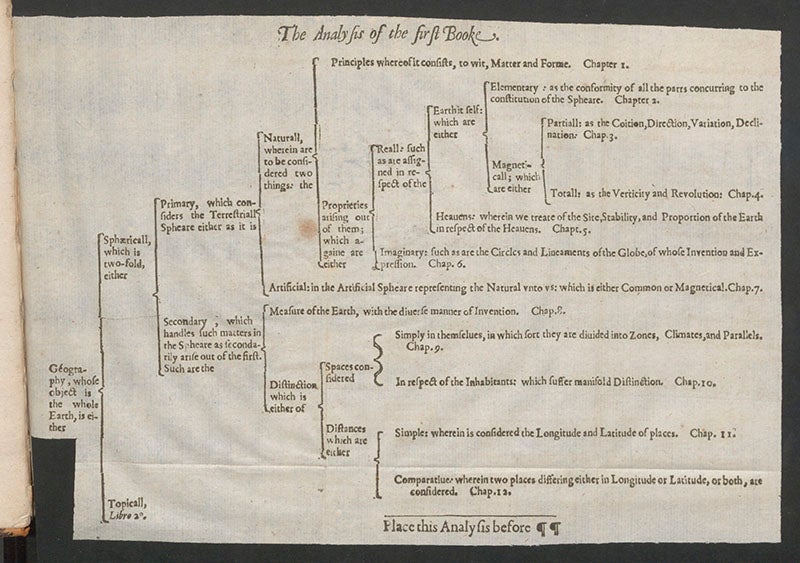 The Analysis of the first Booke.
Principles whereof it consists, to wit, Matter and Forme. Chapter 1.
Elementary: as the conformity of all the parts concurring to the
constitution of the Spheare. Chapter 2.
Earth it self:
which are
either
Partiall: as the Coition, Direction, Variation, Decli-
nation. Chap. 3.
Naturall,
wherein are
to be consi-
dered two
things: the
Reall: such
as are assig-
ned in re-
spect of the
Magneti-
call; which
are either
Totall: as the Verticity and Revolution: Chap. 4.
Primary, which con-
siders the Terrestriall
Spheare either as it is
Proprieties
arising out
of them;
which a-
gaine are
either
Heauens: wherein we treate of the Site, Stability, and Proportion of the Earth
in respect of the Heauens. Chapt. 5.
Sphæricall,
which is
two-fold,
either
Imaginary: such as are the Circles and Lineaments of the Globe, of whose Invention and Ex-
pression. Chap. 6.
Artificial: in the Artificial Spheare representing the Natural vnto vs: which is either Common or Magnetical. Chap. 7.
Secondary, which
handles such matters in
the Spheare as seconda-
rily arise out of the first.
Such are the
Measure of the Earth, with the diuerse manner of Invention. Chap. 8.
Simply in themselues, in which sort they are diuided into Zones, Climates, and Parallels.
Chap. 9.
Geogra-
phy, whose
object is
the whole
Earth, is ei-
ther
Distinction
which is
either of
Spaces con-
sidered
In respect of the Inhabitants: which suffer manifold Distinction. Chap. 10.
Distances
which are
either
Simple: wherein is considered the Longitude and Latitude of places. Chap. 11.
Comparatiue: wherein two places differing either in Longitude or Latitude, or both, are
considered. Chap. 12.
Topicall,
Libro 2º.
Place this Analysis before ¶ ¶